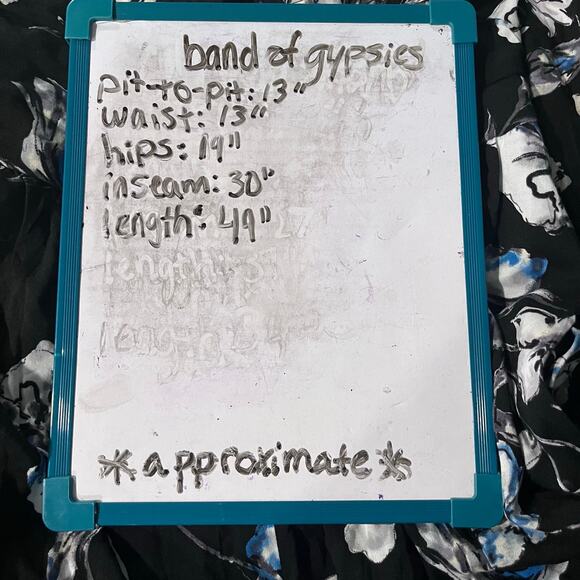 band of gypsies
pit-to-pit: 13"
waist: 13"
hips: 19"
inseam: 30"
length: 49"
length:
length
*approximate*